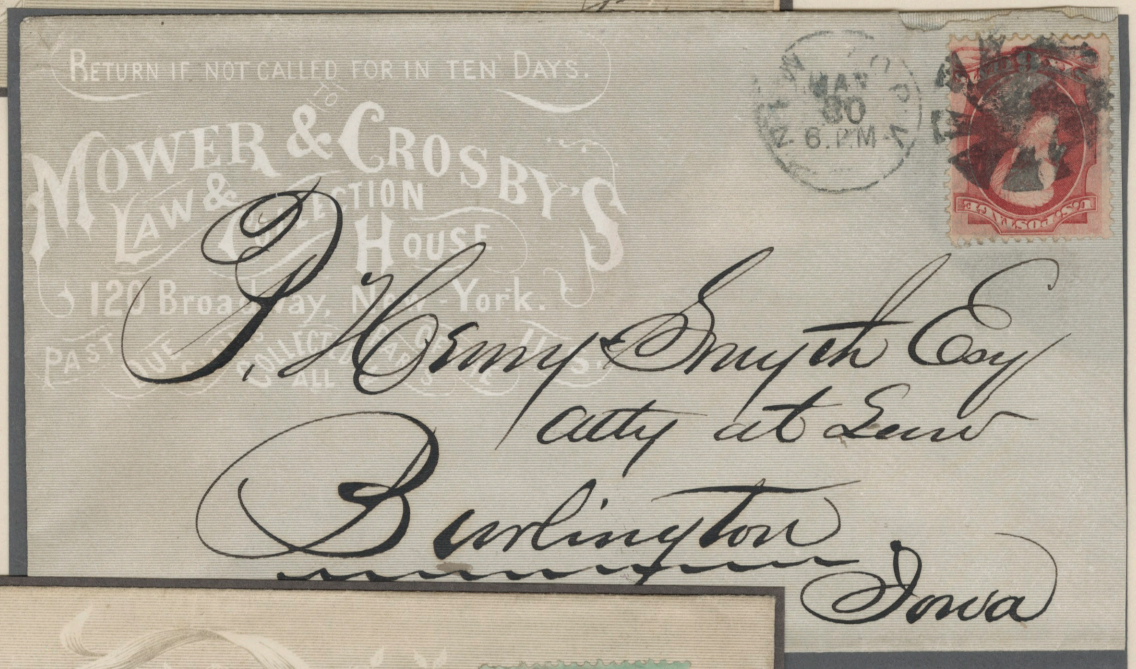 RETURN IF NOT CALLED FOR IN TEN DAYS.
TO
MOWER & CROSBY'S
LAW & COLLECTION
HOUSE
120 Broadway, New-York.
PAST DUE COLLECT ALL
NEW YORK
MAY
30
6. P.M
U.S. POSTAGE
P. Henry Smyth Esq
Atty at Law
Burlington
Iowa